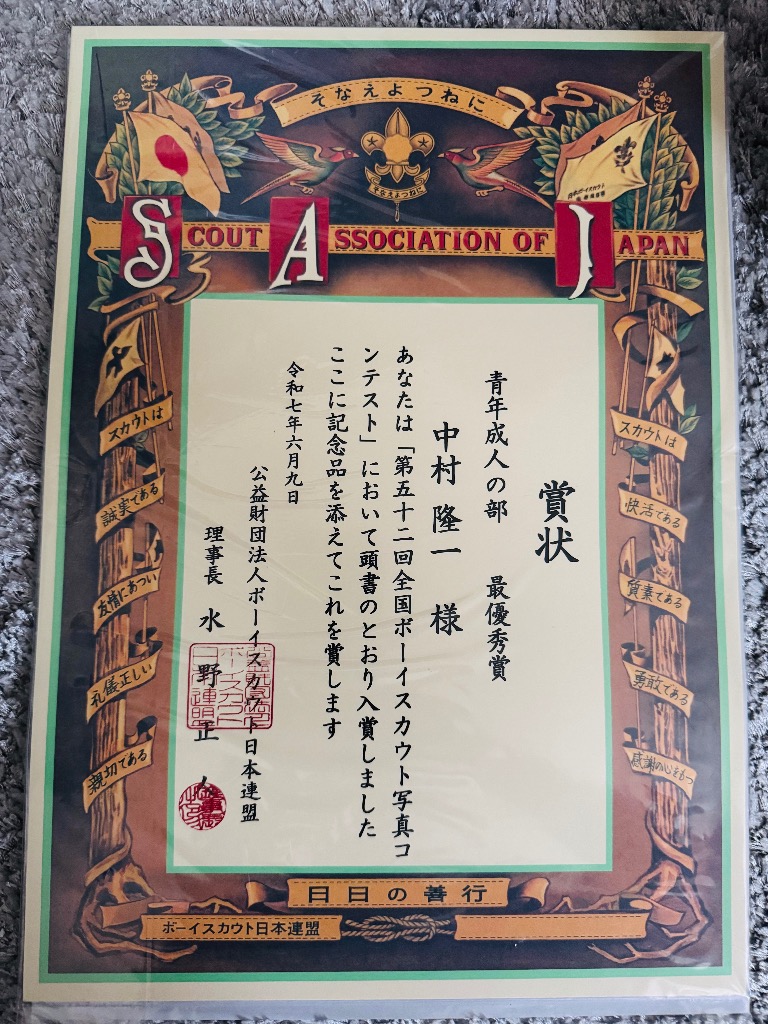 そなえよつねに
そなえよつねに
日本ボーイスカウト
SCOUT ASSOCIATION OF JAPAN
賞状
青年成人の部 最優秀賞
中村 隆一 様
あなたは「第五十二回全国ボーイスカウト写真コ
ンテスト」において頭書のとおり入賞しました
ここに記念品を添えてこれを賞します
令和七年六月九日
公益財団法人ボーイスカウト日本連盟
理事長 水野正人
スカウトは
誠実である
友情にあつい
礼儀正しい
親切である
スカウトは
快活である
質素である
勇敢である
感謝の心をもつ
日日の善行
ボーイスカウト日本連盟